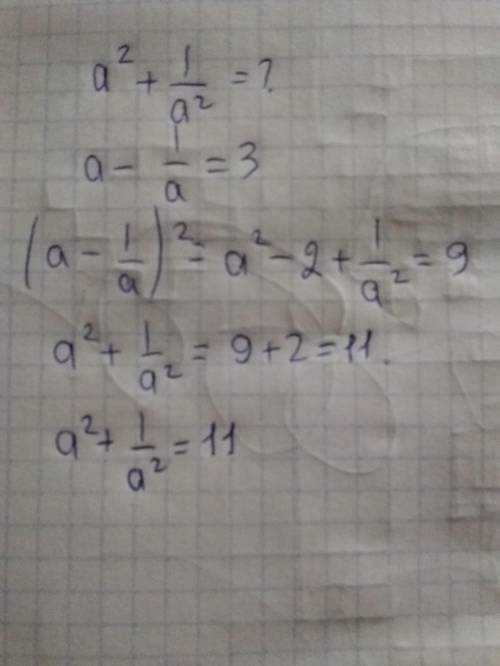 a² + 1/a² = ?
a - 1/a = 3
(a - 1/a)² = a² - 2 + 1/a² = 9
a² + 1/a² = 9 + 2 = 11.
a² + 1/a² = 11